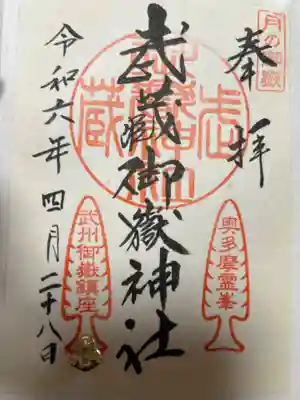 月の御嶽
奉拝
武蔵御嶽神社
令和六年四月二十八日
奥多摩霊峯
武州御嶽鎮座